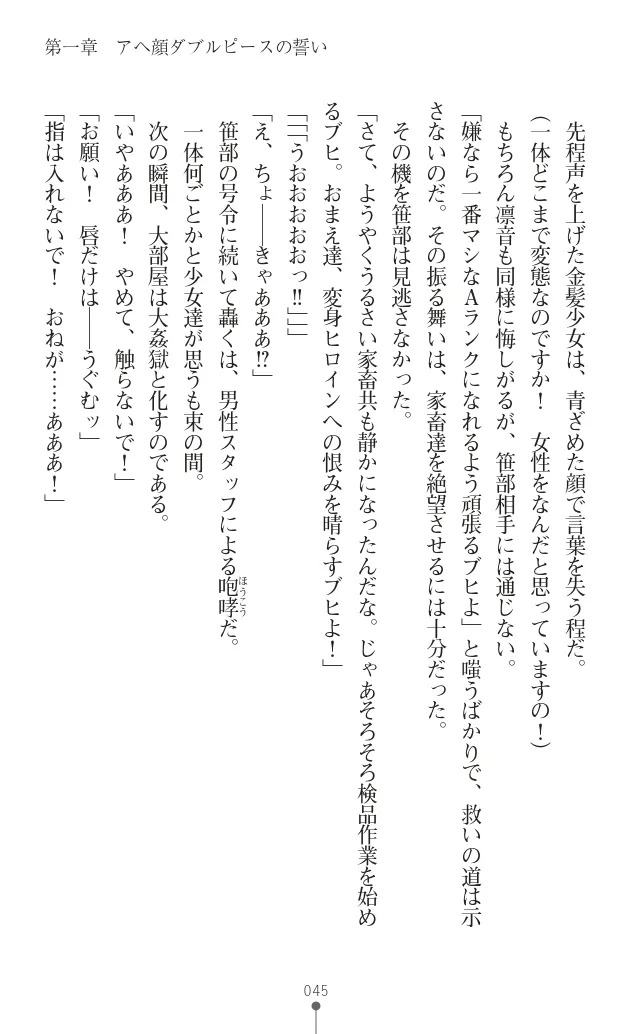 第一章　アヘ顔ダブルピースの誓い
先程声を上げた金髪少女は、青ざめた顔で言葉を失う程だ。
(一体どこまで変態なのですか！　女性をなんだと思っていますの！)
もちろん凛音も同様に悔しがるが、笹部相手には通じない。
「嫌なら一番マシなAランクになれるよう頑張るブヒよ」と嗤うばかりで、救いの道は示
さないのだ。その振る舞いは、家畜達を絶望させるには十分だった。
その機を笹部は見逃さなかった。
「さて、ようやくうるさい家畜共も静かになったんだな。じゃあそろそろ検品作業を始め
るブヒ。おまえ達、変身ヒロインへの恨みを晴らすブヒよ！」
「「「うおおおおおっ‼」」」
「え、ちょ――きゃあああ⁉」
笹部の号令に続いて轟くは、男性スタッフによる咆哮ほうこうだ。
一体何ごとかと少女達が思うも束の間。
次の瞬間、大部屋は大姦獄と化すのである。
「いやあああ！　やめて、触らないで！」
「お願い！　唇だけは――うぐむッ」
「指は入れないで！　おねが……あああ！」
045